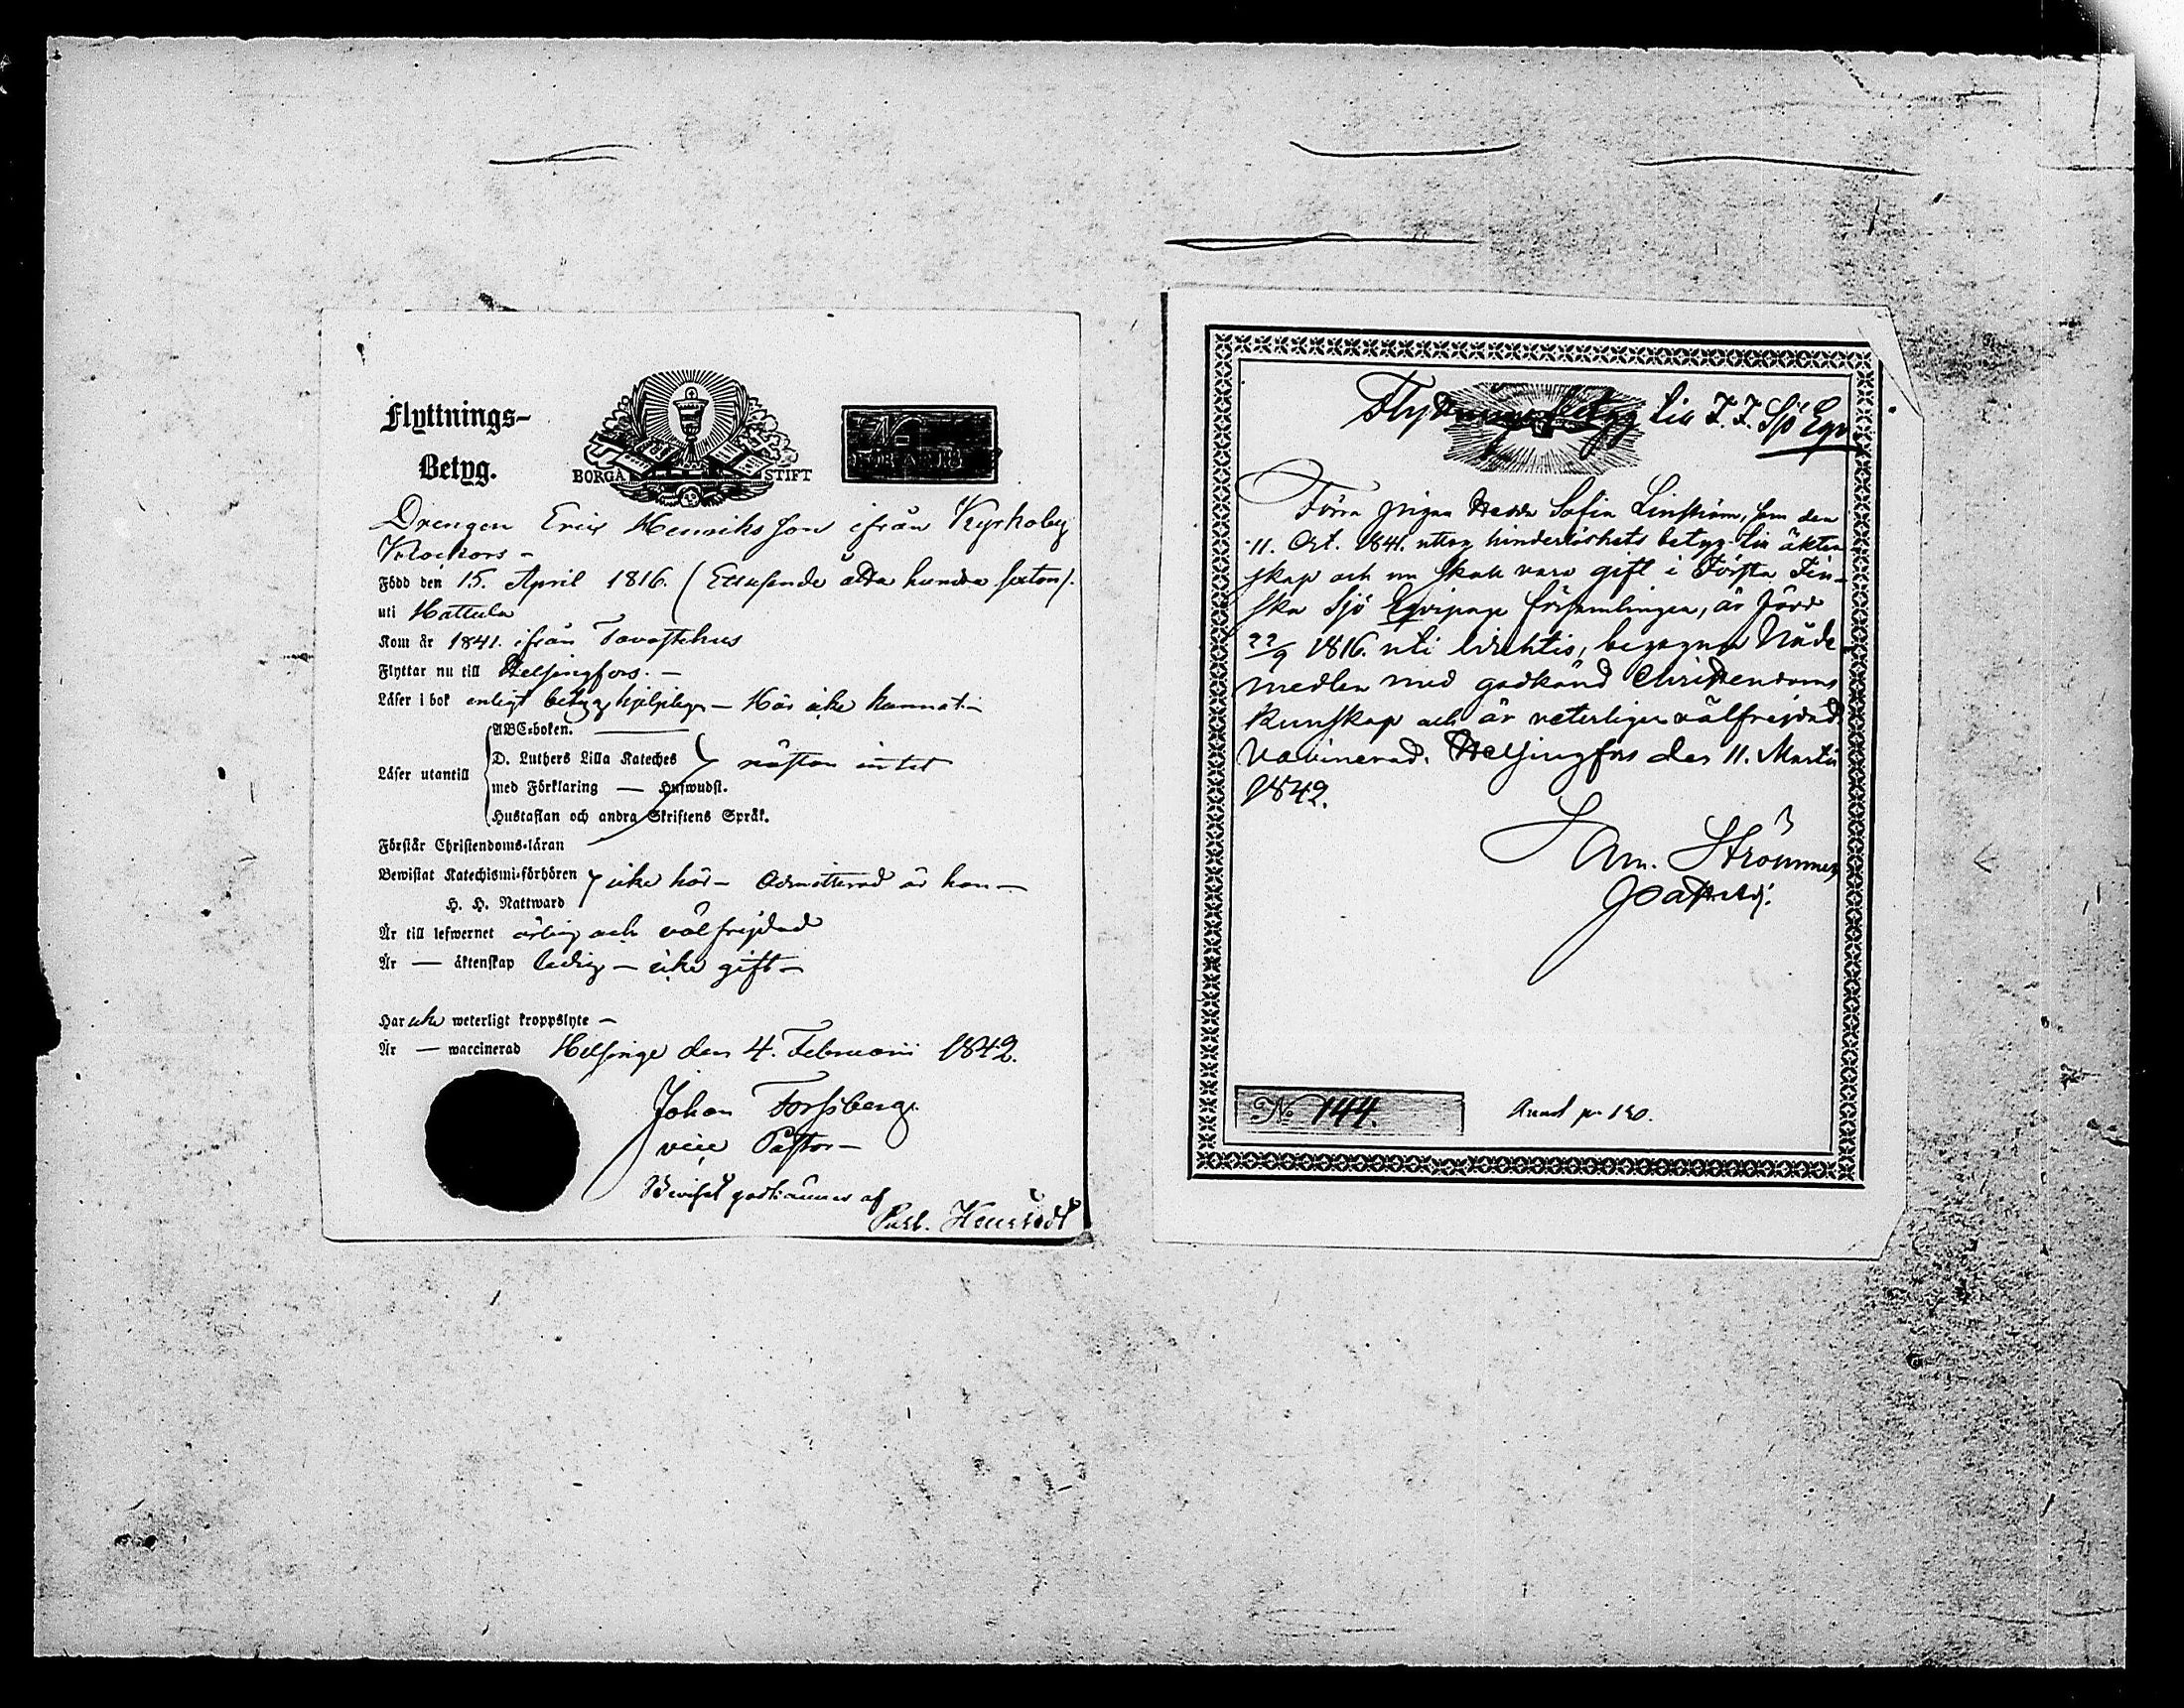 Flyttnings-
Betyg.
BORGÅ STIFT
Drengen Eric Henriksson ifrån Kyrkoby
Klockars -
Född den 15. April 1816. (Ettusende åtta hundra sexton).
uti Hattula
Kom år 1841. ifrån Tavastehus
Flyttar nu till Helsingfors. -
Läser i bok enligt betyg hjelpligen - Här icke kunnat. -
ABC-boken.
D. Luthers Lilla Kateches
Läser utantill nästan intet
med Förklaring — Hufwudst.
Hustaflan och andra Skriftens Språk.
Förstår Christendoms-läran
Bewistat Katechismi-förhören icke här - Admitterad är han -
H. H. Nattward
Är till lefwernet ärlig och välfrejdad
Är — äktenskap ledig - icke gift -
Har icke weterligt kroppslyte -
Är — waccinerad Helsinge den 4. Februarii 1842.
Johan Forssberg
vice Pastor -
Beviset godkännes af
Flyttningsbetyg till F. F. Sjö Eqv.
Förra pigan Hedda Sofia Linström, som den
11. Oct. 1841. uttog hinderlöshets betyg till äkten-
skap och nu skall vara gift i Första Fin-
ska Sjö Eqvipage församlingen, är född
22/9 1816. uti Wichtis, begagnar Nåde-
medlen med godkänd Christendoms
kunskap och är veterligen välfrejdad.
Vaccinerad. Helsingfors den 11. Martii
1842.
Am. Strömmer
No 144.
Annot p. 130.